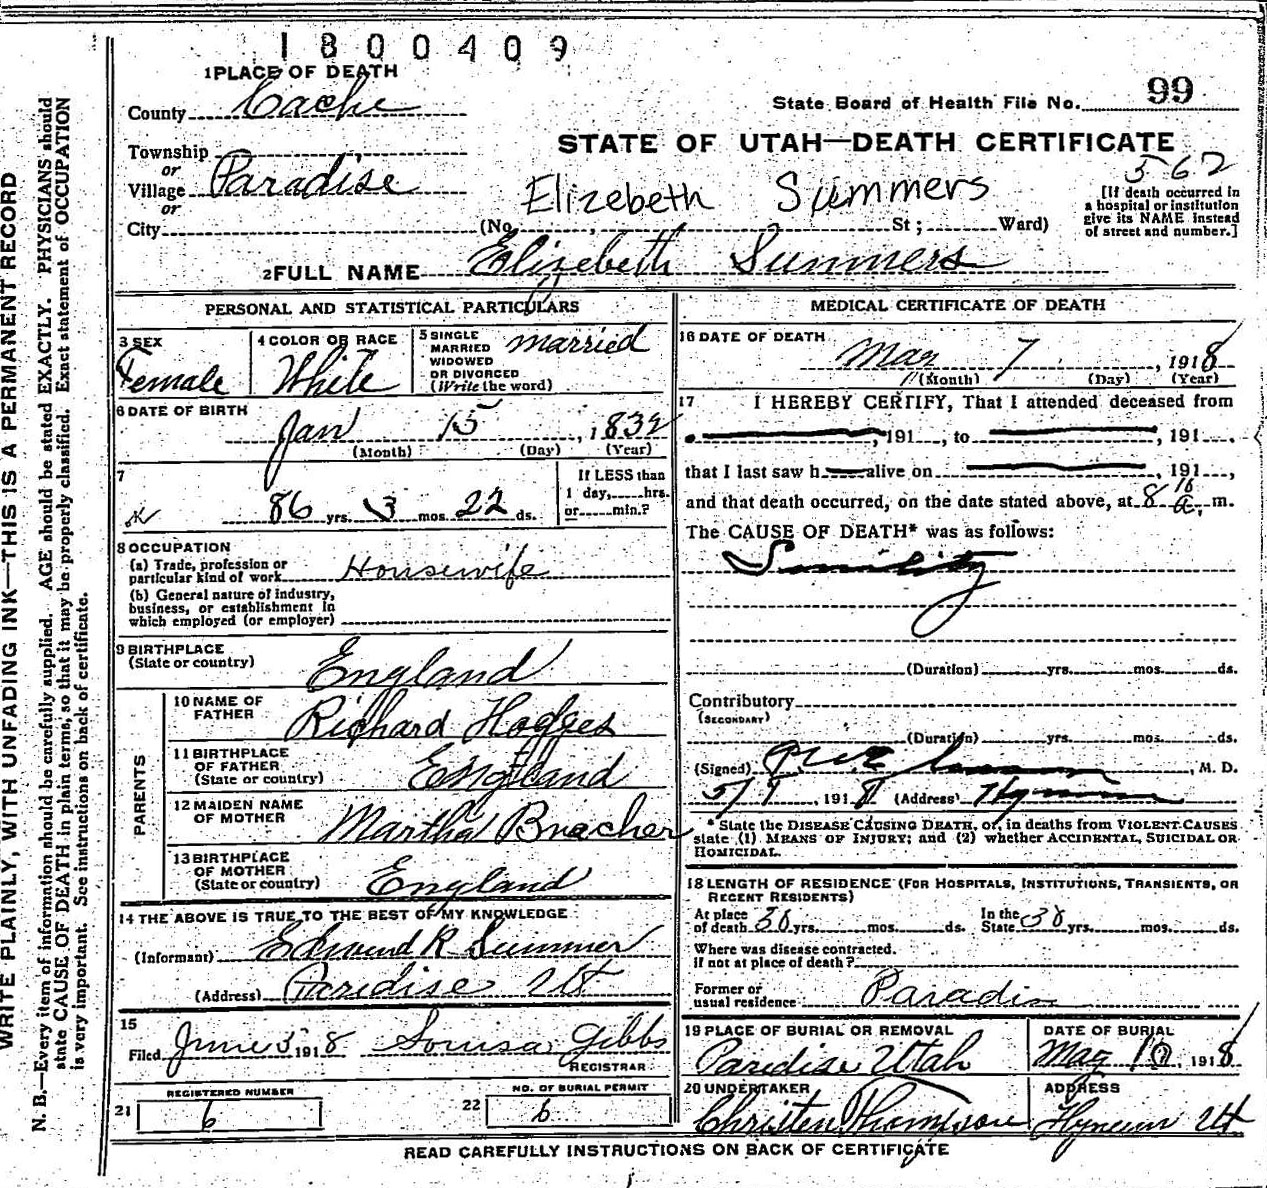 1800409
1 PLACE OF DEATH
County Cache
State Board of Health File No. 99
STATE OF UTAH—DEATH CERTIFICATE
Township
or
Village Paradise
or
City
562
Elizebeth Summers
(No. St ; Ward)
[If death occurred in
a hospital or institution
give its NAME instead
of street and number.]
2 FULL NAME Elizebeth Summers
PERSONAL AND STATISTICAL PARTICULARS
3 SEX
Female
4 COLOR OR RACE
White
5 SINGLE
MARRIED
WIDOWED
OR DIVORCED
(Write the word)
married
6 DATE OF BIRTH
Jan 15, 1832
(Month) (Day) (Year)
7
86 yrs. 3 mos. 22 ds.
If LESS than
1 day, hrs.
or min.?
8 OCCUPATION
(a) Trade, profession or
particular kind of work Housewife
(b) General nature of industry,
business, or establishment in
which employed (or employer)
9 BIRTHPLACE
(State or country) England
PARENTS
10 NAME OF
FATHER Richard Hodges
11 BIRTHPLACE
OF FATHER
(State or country) England
12 MAIDEN NAME
OF MOTHER Martha
13 BIRTHPLACE
OF MOTHER
(State or country) England
14 THE ABOVE IS TRUE TO THE BEST OF MY KNOWLEDGE
(Informant) Edmund R Summer
(Address) Paridise Ut
15
Filed June 3 1918 Louisa Gibbs
REGISTRAR
REGISTERED NUMBER
21 6
NO. OF BURIAL PERMIT
22 6
MEDICAL CERTIFICATE OF DEATH
16 DATE OF DEATH
May 7, 1918
(Month) (Day) (Year)
17 I HEREBY CERTIFY, That I attended deceased from
, 191 , to , 191 ,
that I last saw h alive on , 191 ,
and that death occurred, on the date stated above, at 8 10 a. m.
The CAUSE OF DEATH* was as follows:
(Duration) yrs. mos. ds.
Contributory
(SECONDARY)
(Duration) yrs. mos. ds.
(Signed) , M. D.
5/9, 1918 (Address) Hyrum
* State the DISEASE CAUSING DEATH, or, in deaths from VIOLENT CAUSES
state (1) MEANS OF INJURY; and (2) whether ACCIDENTAL, SUICIDAL OR
HOMICIDAL.
18 LENGTH OF RESIDENCE (FOR HOSPITALS, INSTITUTIONS, TRANSIENTS, OR
RECENT RESIDENTS)
At place
of death 38 yrs. mos. ds. In the
State 38 yrs. mos. ds.
Where was disease contracted.
If not at place of death?
Former or
usual residence Paradis
19 PLACE OF BURIAL OR REMOVAL
Paridise Utah
DATE OF BURIAL
May 10, 1918
20 UNDERTAKER
Christen Thomson
ADDRESS
Hyrum Ut
READ CAREFULLY INSTRUCTIONS ON BACK OF CERTIFICATE
WRITE PLAINLY, WITH UNFADING INK—THIS IS A PERMANENT RECORD
N. B.—Every item of information should be carefully supplied. AGE should be stated EXACTLY. PHYSICIANS should
state CAUSE OF DEATH in plain terms, so that it may be properly classified. Exact statement of OCCUPATION
is very important. See instructions on back of certificate.